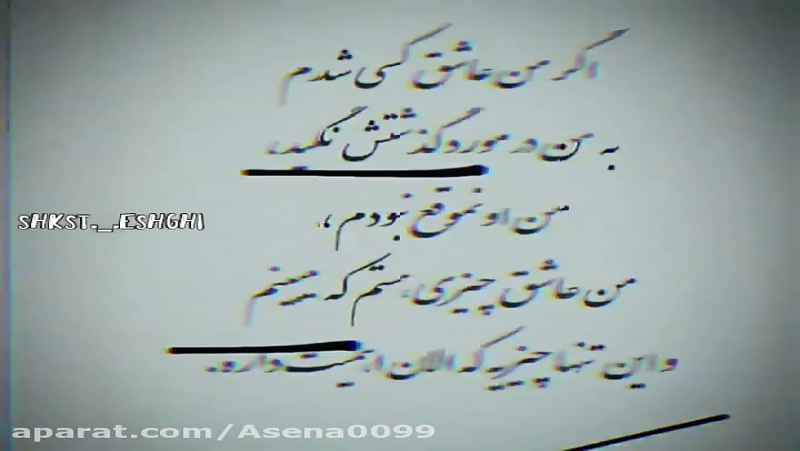 اگر من عاشق کسی شدم
به من در مورد گذشتش نگید،
من اونموقع نبودم،
من عاشق چیزی هستم که میبینم
و این تنها چیزیه که الان اهمیت داره.
SHKST._.ESHGHI
aparat.com/Asena0099